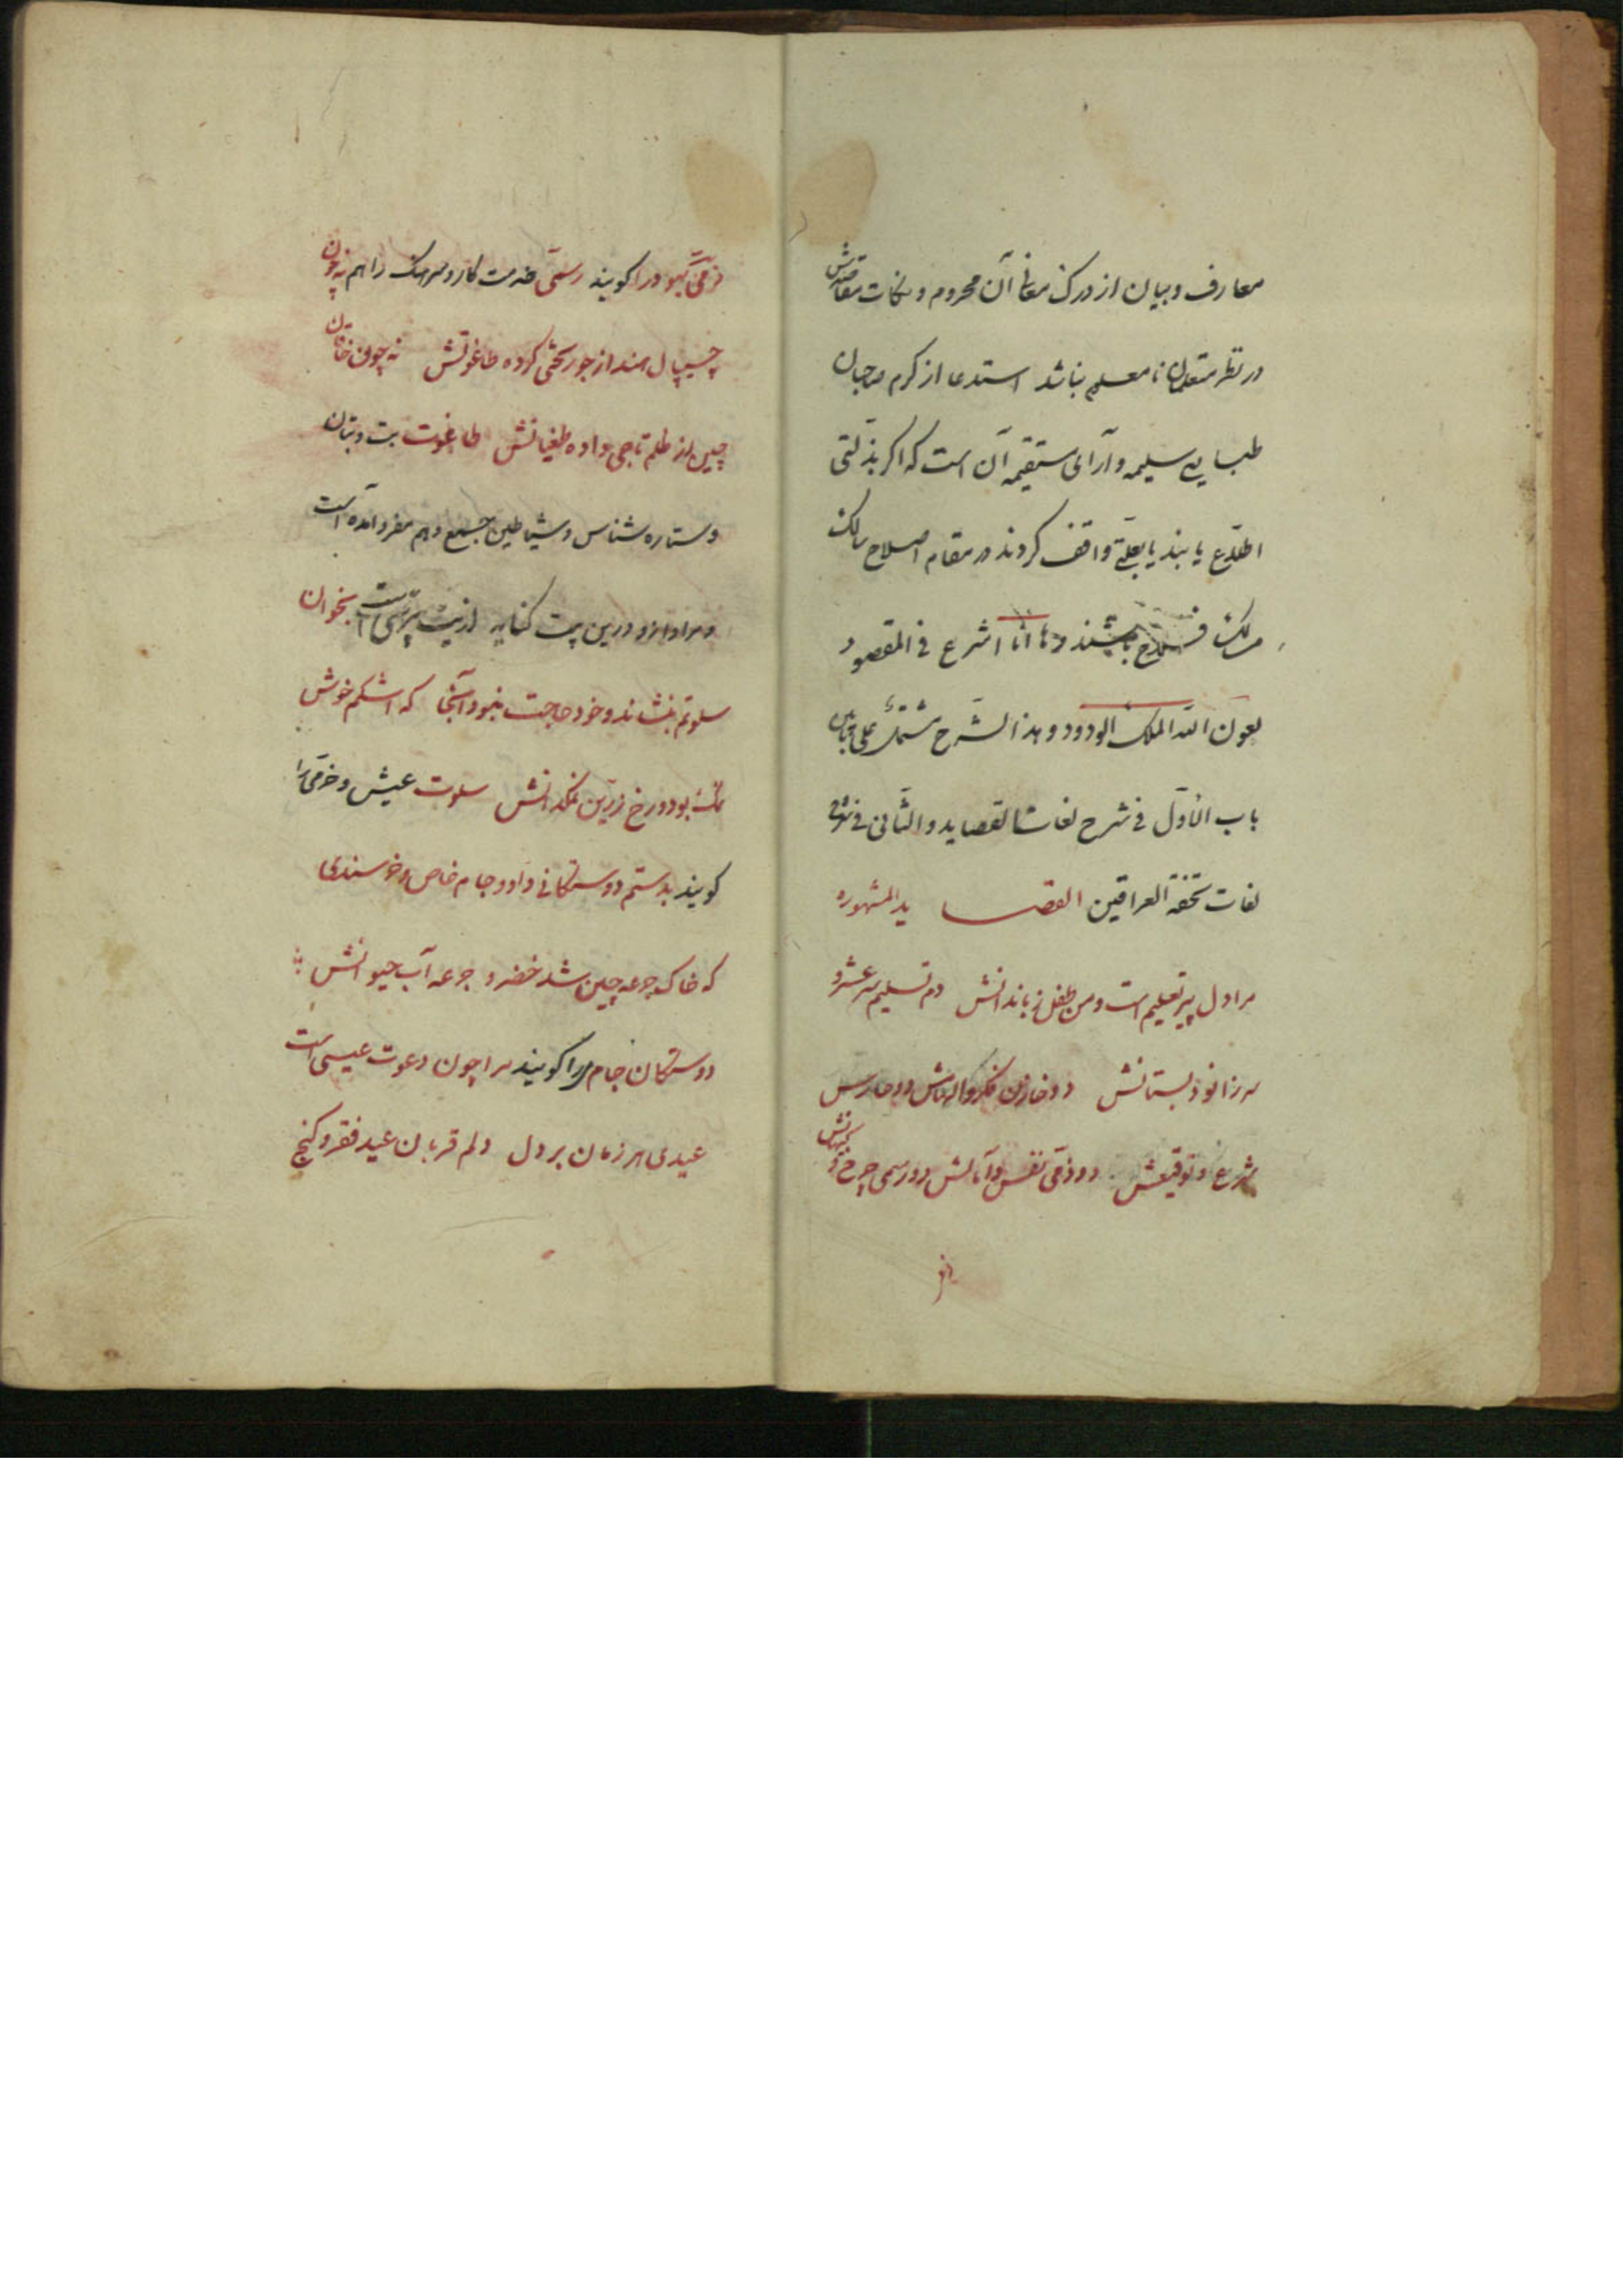 معارف و بیان از درک معانی آن محروم و نکات مقاصدش
در نظر متعلمان نا معلوم نباشد استدعا از کرم صاحبان
طبایع سلیمه و آرای مستقیمه آن است که اگر بذلتی
اطلاع یابند یا بعلتی واقف کردند در مقام اصلاح سالک
مسالک فلاح باشند و ها انا اشرع فی المقصود
بعون الله الملک الودود و هذا الشرح مشتمل علی بابین
باب الاول فی شرح لغات القصاید و الثانی فی شرح
لغات تحفة العراقین القصاید المشهوره
مرا دل پیر تعلیم است و من طفل زباندانش دم تسلیم سر عشر و
سر زانو دبستانش دو خازن فکر و الهامش دو حارس
شرع و توفیقش دو ذمی نفس و آمالش دو رسمی چرخ و کیهانش
ذمی
ذمی یهود را کویند رسمی خدمت کار و سرهنک را هم نه چون
چیپال هند از جور تختی کرده طاغوتش نه چون خاقان
چین از ظلم تاجی داده طغیانش طاغوت بت و بتان
و ستاره شناس و شیاطین جمع و هم مفرد آمده است
و مراد ازو درین بیت کنایه از بت پرستی است بخوان
سلوتم بنشاند و خود حاجت نبود آنجا که اشکم خوش
نمک بود و رخ زرین نمکدانش سلوت عیش و خرمی را
کویند بدستم دوستکانی داد و جام خاص و خرسندی
که خاک جرعه چین شد خضر و جرعه آب حیوانش
دوستکان جام را کویند مرا چون دعوت عیسی است
عیدی هر زمان بر دل دلم قربان عید فقر و کنج